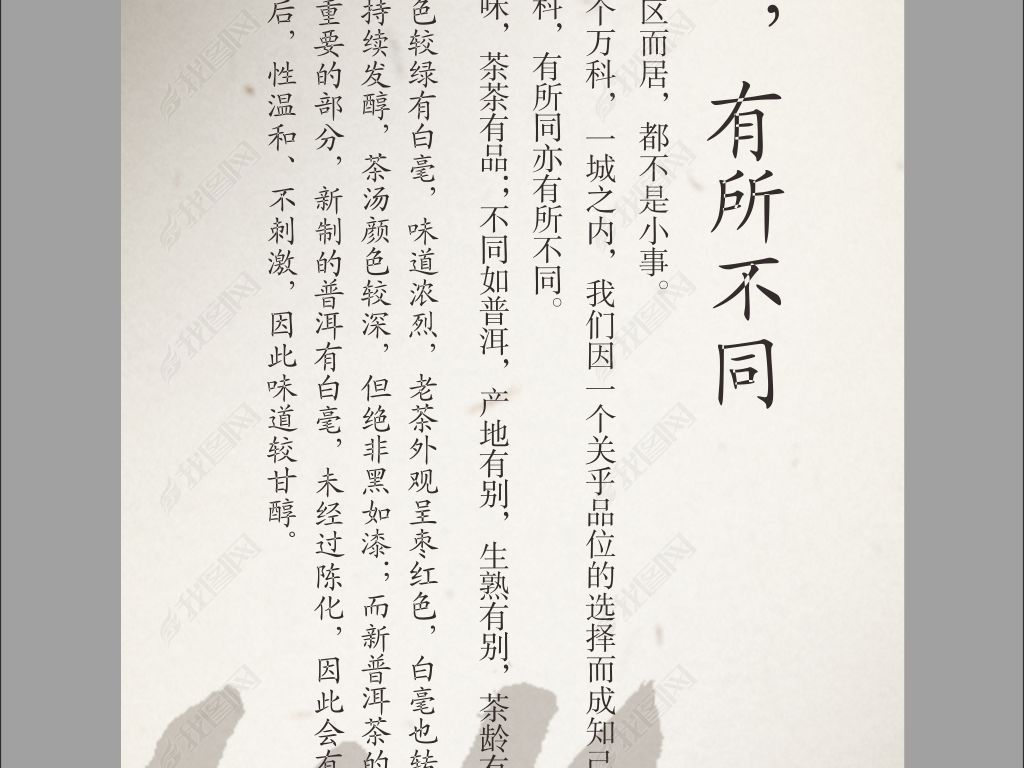 ，有所不同
区而居，都不是小事。
个万科，一城之内，我们因一个关乎品位的选择而成知己
科，有所同亦有所不同。
味，茶茶有品；不同如普洱，产地有别，生熟有别，茶龄有
色较绿有白毫，味道浓烈，老茶外观呈枣红色，白毫也转
持续发醇，茶汤颜色较深，但绝非黑如漆；而新普洱茶的
重要的部分，新制的普洱有白毫，未经过陈化，因此会有
后，性温和、不刺激，因此味道较甘醇。